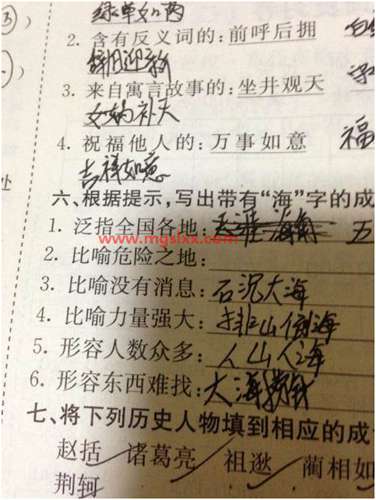 绿草如茵
2. 含有反义词的：前呼后拥
辞旧迎新
3. 来自寓言故事的：坐井观天
女娲补天
4. 祝福他人的：万事如意 福
吉祥如意
处
六、根据提示，写出带有“海”字的成
1. 泛指全国各地：天涯海角 五
www.mgslxx.com
2. 比喻危险之地：
3. 比喻没有消息：石沉大海
4. 比喻力量强大：排山倒海
5. 形容人数众多：人山人海
6. 形容东西难找：大海捞针
七、将下列历史人物填到相应的成
赵括 诸葛亮 祖逖 蔺相如
荆轲